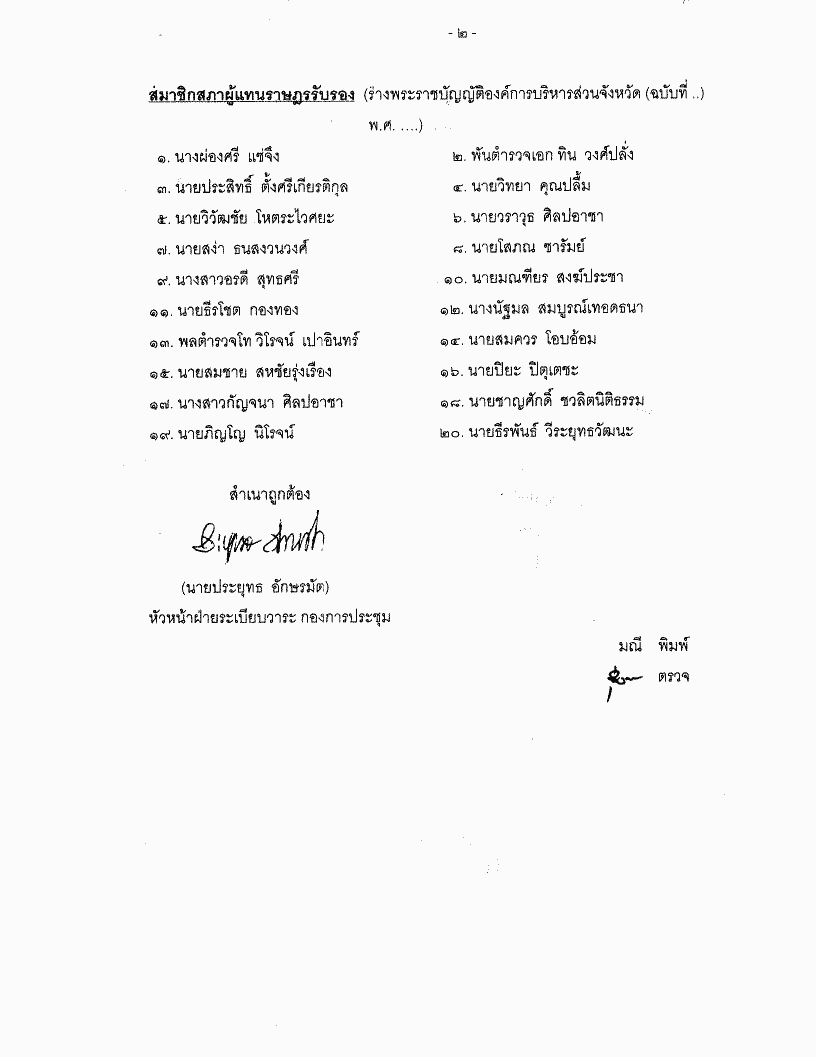 - ๒ -
สมาชิกสภาผู้แทนราษฎรรับรอง (ร่างพระราชบัญญัติองค์การบริหารส่วนจังหวัด (ฉบับที่ ..)
พ.ศ. ....)
๑. นางผ่องศรี แซ่จึง ๒. พันตำรวจเอก ทิน วงศ์ปลั่ง
๓. นายประสิทธิ์ ตั้งศรีเกียรติกุล ๔. นายวิทยา คุณปลื้ม
๕. นายวิวัฒชัย โหตระไวศยะ ๖. นายวราวุธ ศิลปอาชา
๗. นายสง่า ธนสงวนวงศ์ ๘. นายโสภณ ซารัมย์
๙. นางสาวอรดี สุทธศรี ๑๐. นายมณเฑียร สงฆ์ประชา
๑๑. นายธีรโชต กองทอง ๑๒. นางนัฐมล สมบูรณ์เทอดธนา
๑๓. พลตำรวจโท วิโรจน์ เปาอินทร์ ๑๔. นายสมควร โอบอ้อม
๑๕. นายสมชาย สหชัยรุ่งเรือง ๑๖. นายปิยะ ปิตุเตชะ
๑๗. นางสาวกัญจนา ศิลปอาชา ๑๘. นายชาญศักดิ์ ชวลิตนิติธรรม
๑๙. นายภิญโญ นิโรจน์ ๒๐. นายธีรพันธ์ วีระยุทธวัฒนะ
สำเนาถูกต้อง
(นายประยุทธ อักษรมัต)
หัวหน้าฝ่ายระเบียบวาระ กองการประชุม
มณี พิมพ์
ตรวจ